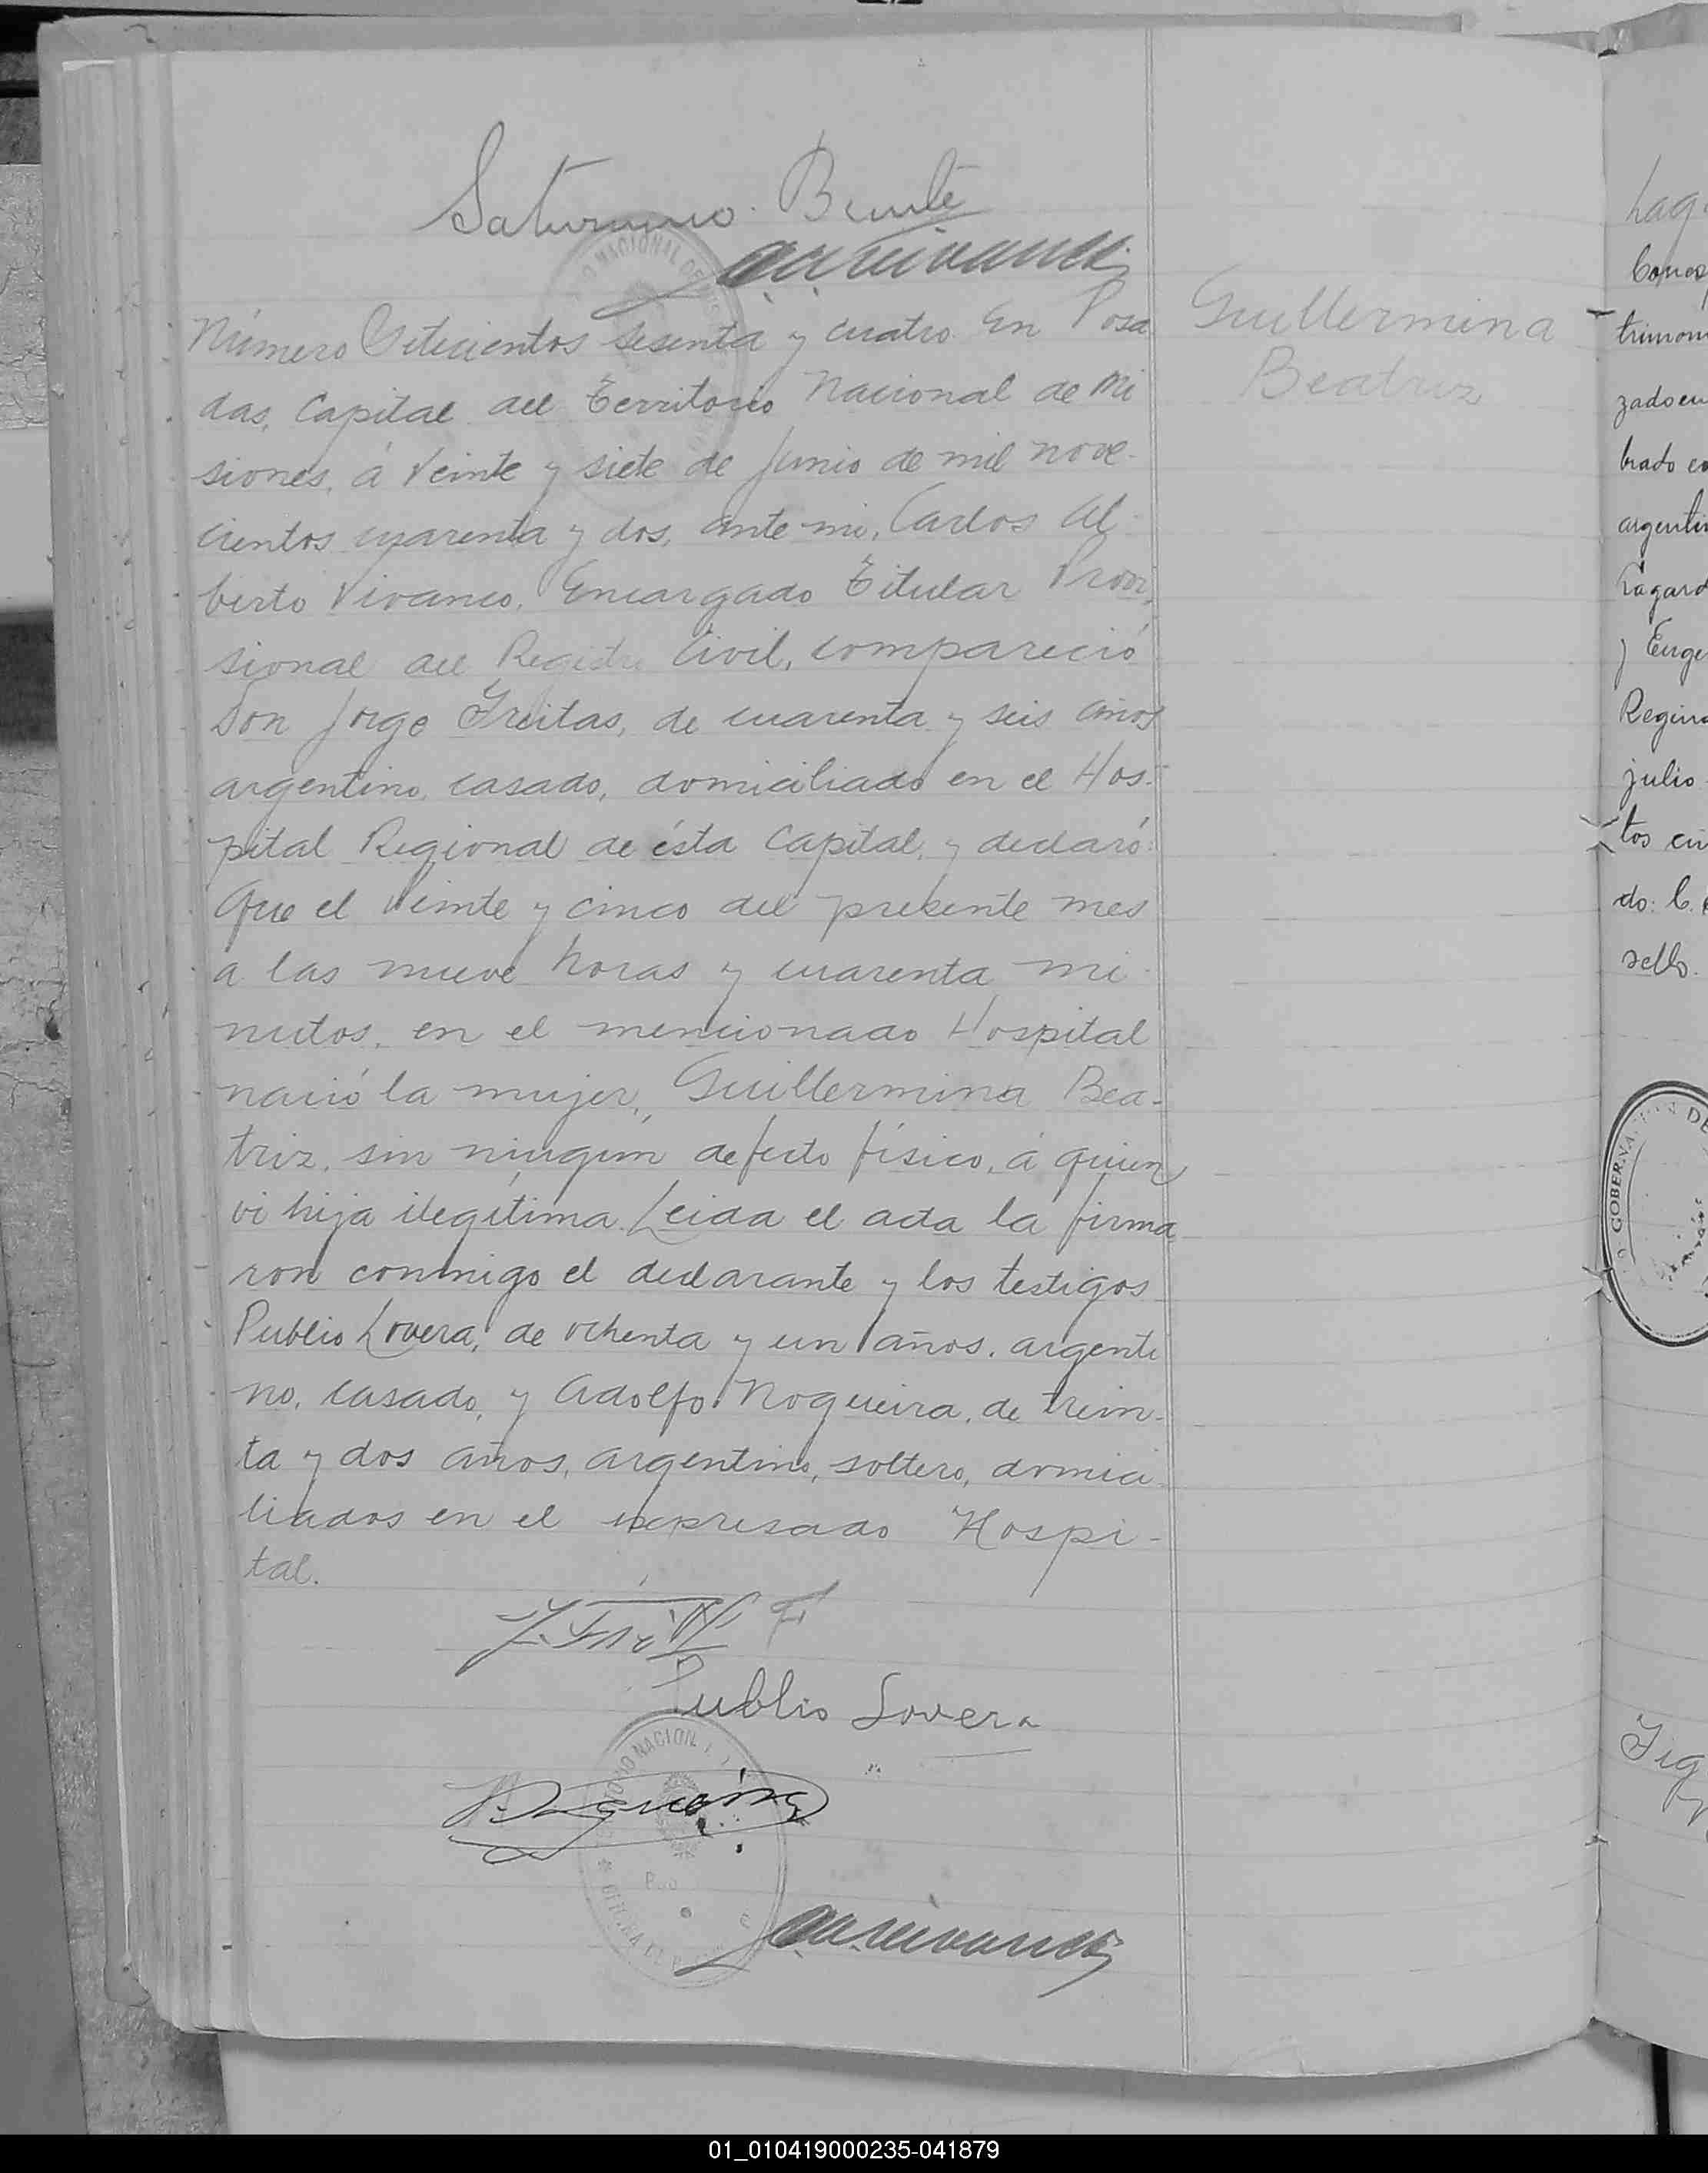 Saturnino Benite
Guillermina
Beatriz
Número Setecientos sesenta y cuatro. En Posa
das, Capital del Territorio Nacional de Mi
siones, á Veinte y siete de Junio de mil nove-
cientos cuarenta y dos, ante mi, Carlos Al-
berto Vivanco, Encargado Titular Provi,
sional del Registro Civil, compareció
Don Jorge Freitas, de cuarenta y seis años
argentino, casado, domiciliado en el Hos-
pital Regional de ésta Capital, y declaró:
Que el Veinte y cinco del presente mes
a las nueve horas y cuarenta mi-
nutos, en el mencionado Hospital
nació la mujer, Guillermina Bea-
triz, sin ningún defecto físico, á quien
vi hija ilegítima. Leida el acta la firma
ron conmigo el declarante y los testigos
Publio Lovera, de ochenta y un años, argenti
no, casado, y Adolfo Nogueira, de trein-
ta y dos años, argentino, soltero, domici-
liados en el expresado Hospi-
tal.
Publio Lovera
NACION
Lag
trimon
zado en
brado
argentin
julio
tos
do:
sello.
GOBERNA
DE
01_010419000235-041879